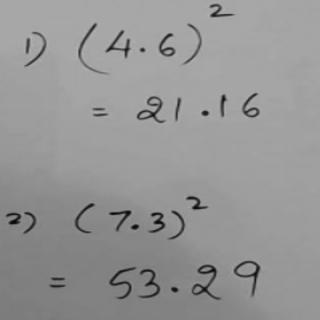 1) (4.6)²
= 21.16
2) (7.3)²
= 53.29